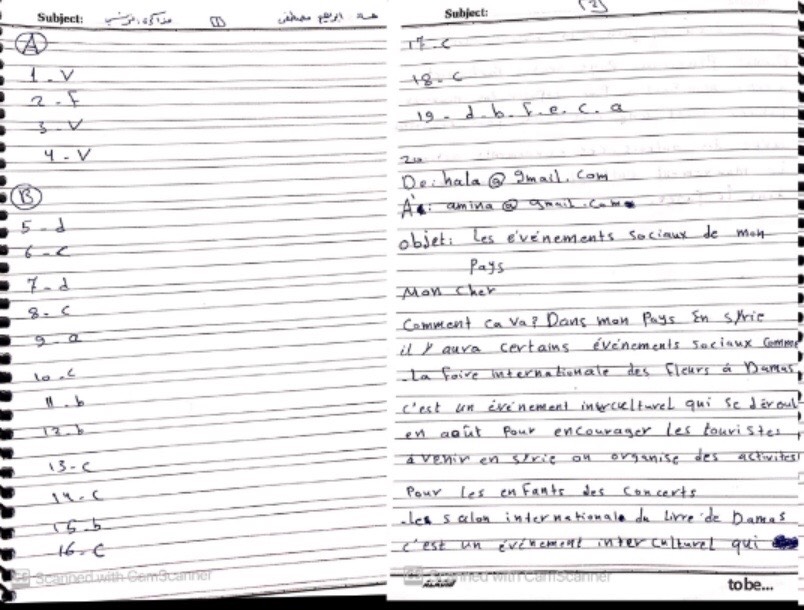 Subject:
(1)
A
1 - V
2 - F
3 - V
4 - V
B
5 - d
6 - c
7 - d
8 - c
9 - a
10 - c
11 - b
12 - b
13 - c
14 - c
15 - b
16 - c
Scanned with CamScanner
Subject:
(2)
17 - c
18 - c
19 - d - b - f - e - c - a
20
De: hala @ gmail. com
À: amina @ gmail. com
objet: Les événements sociaux de mon
Pays
Mon cher
Comment ca va? Dans mon Pays En Syrie
il y aura certains événements sociaux comme
-La foire internationale des fleurs à Damas
c'est un événement interculturel qui se déroul
en août Pour encourager les touristes
à venir en syrie on organise des activités
Pour les enfants des concerts
-Les salon internationale du Livre de Damas
c'est un événement interculturel qui
Scanned with CamScanner
to be...